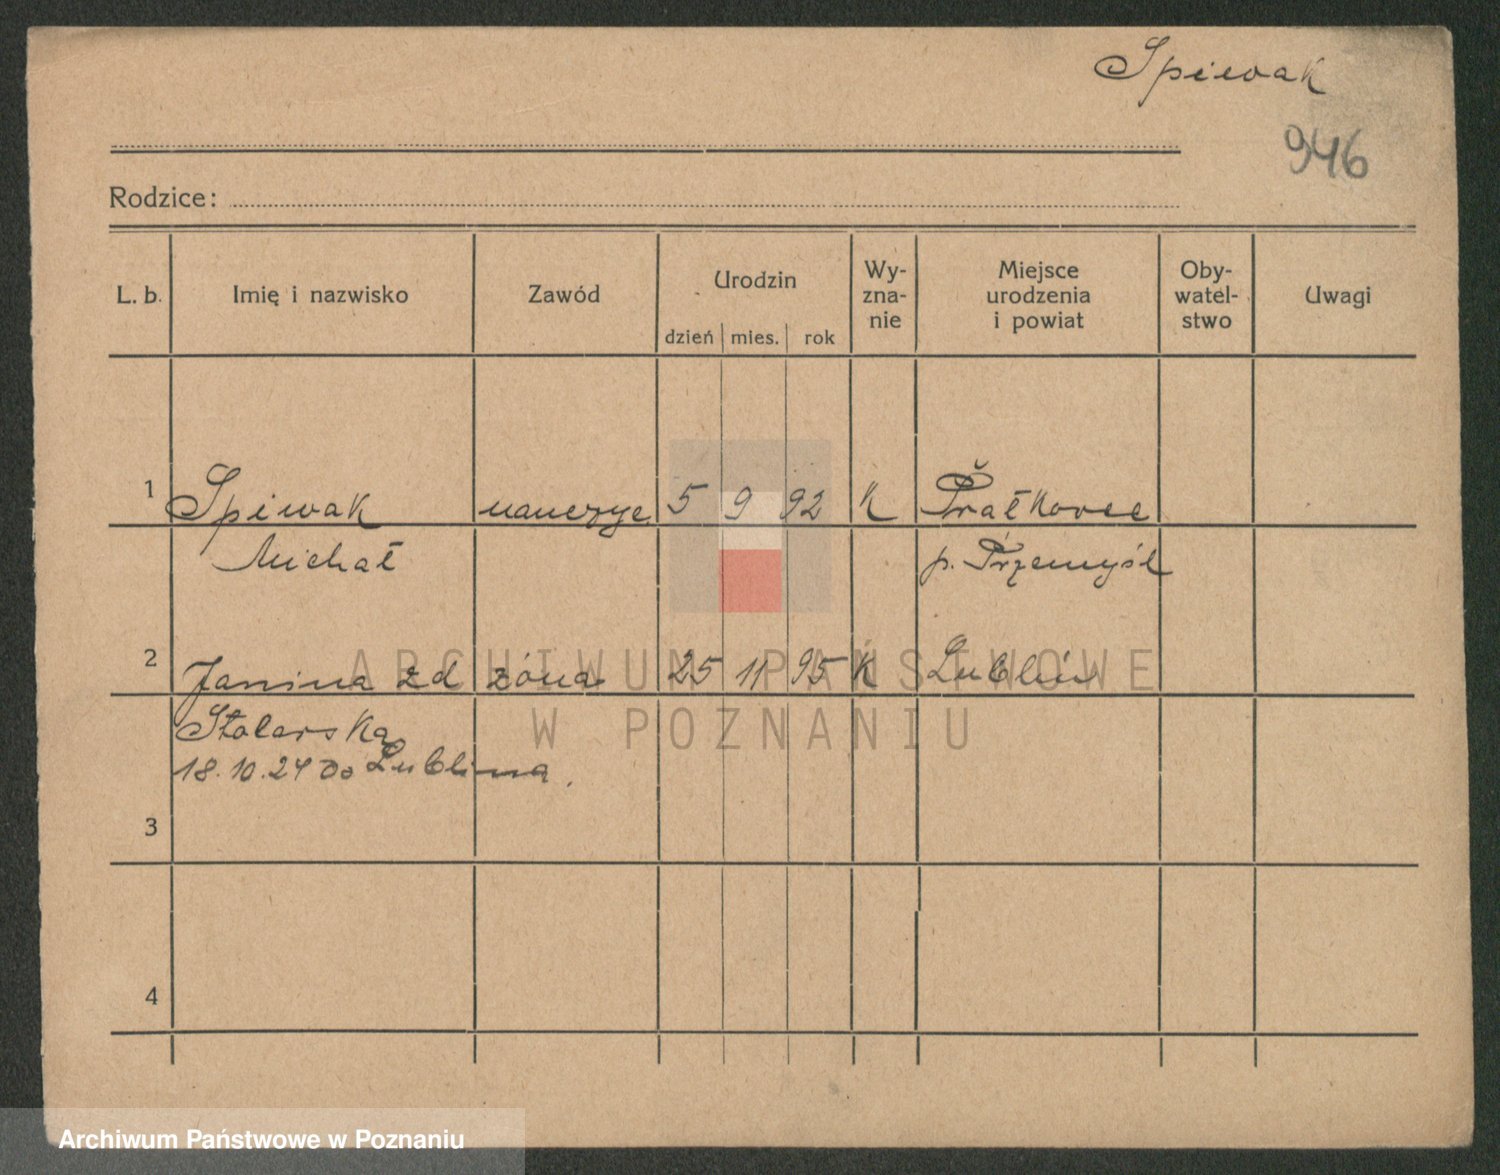 Spiewak
946
Rodzice:
L. b. Imię i nazwisko Zawód Urodzin dzień mies. rok Wy-zna-nie Miejsce urodzenia i powiat Oby-watel-stwo Uwagi
1 Spiwak nauczyc 5 9 92 K Prałkovce
Michał p. Przemyśl
2 Janina zd żóna 25 11 95 K Lublin
Stolarska
18.10.24 do Lublina.
3
4
ARCHIWUM PAŃSTWOWE
W POZNANIU
Archiwum Państwowe w Poznaniu